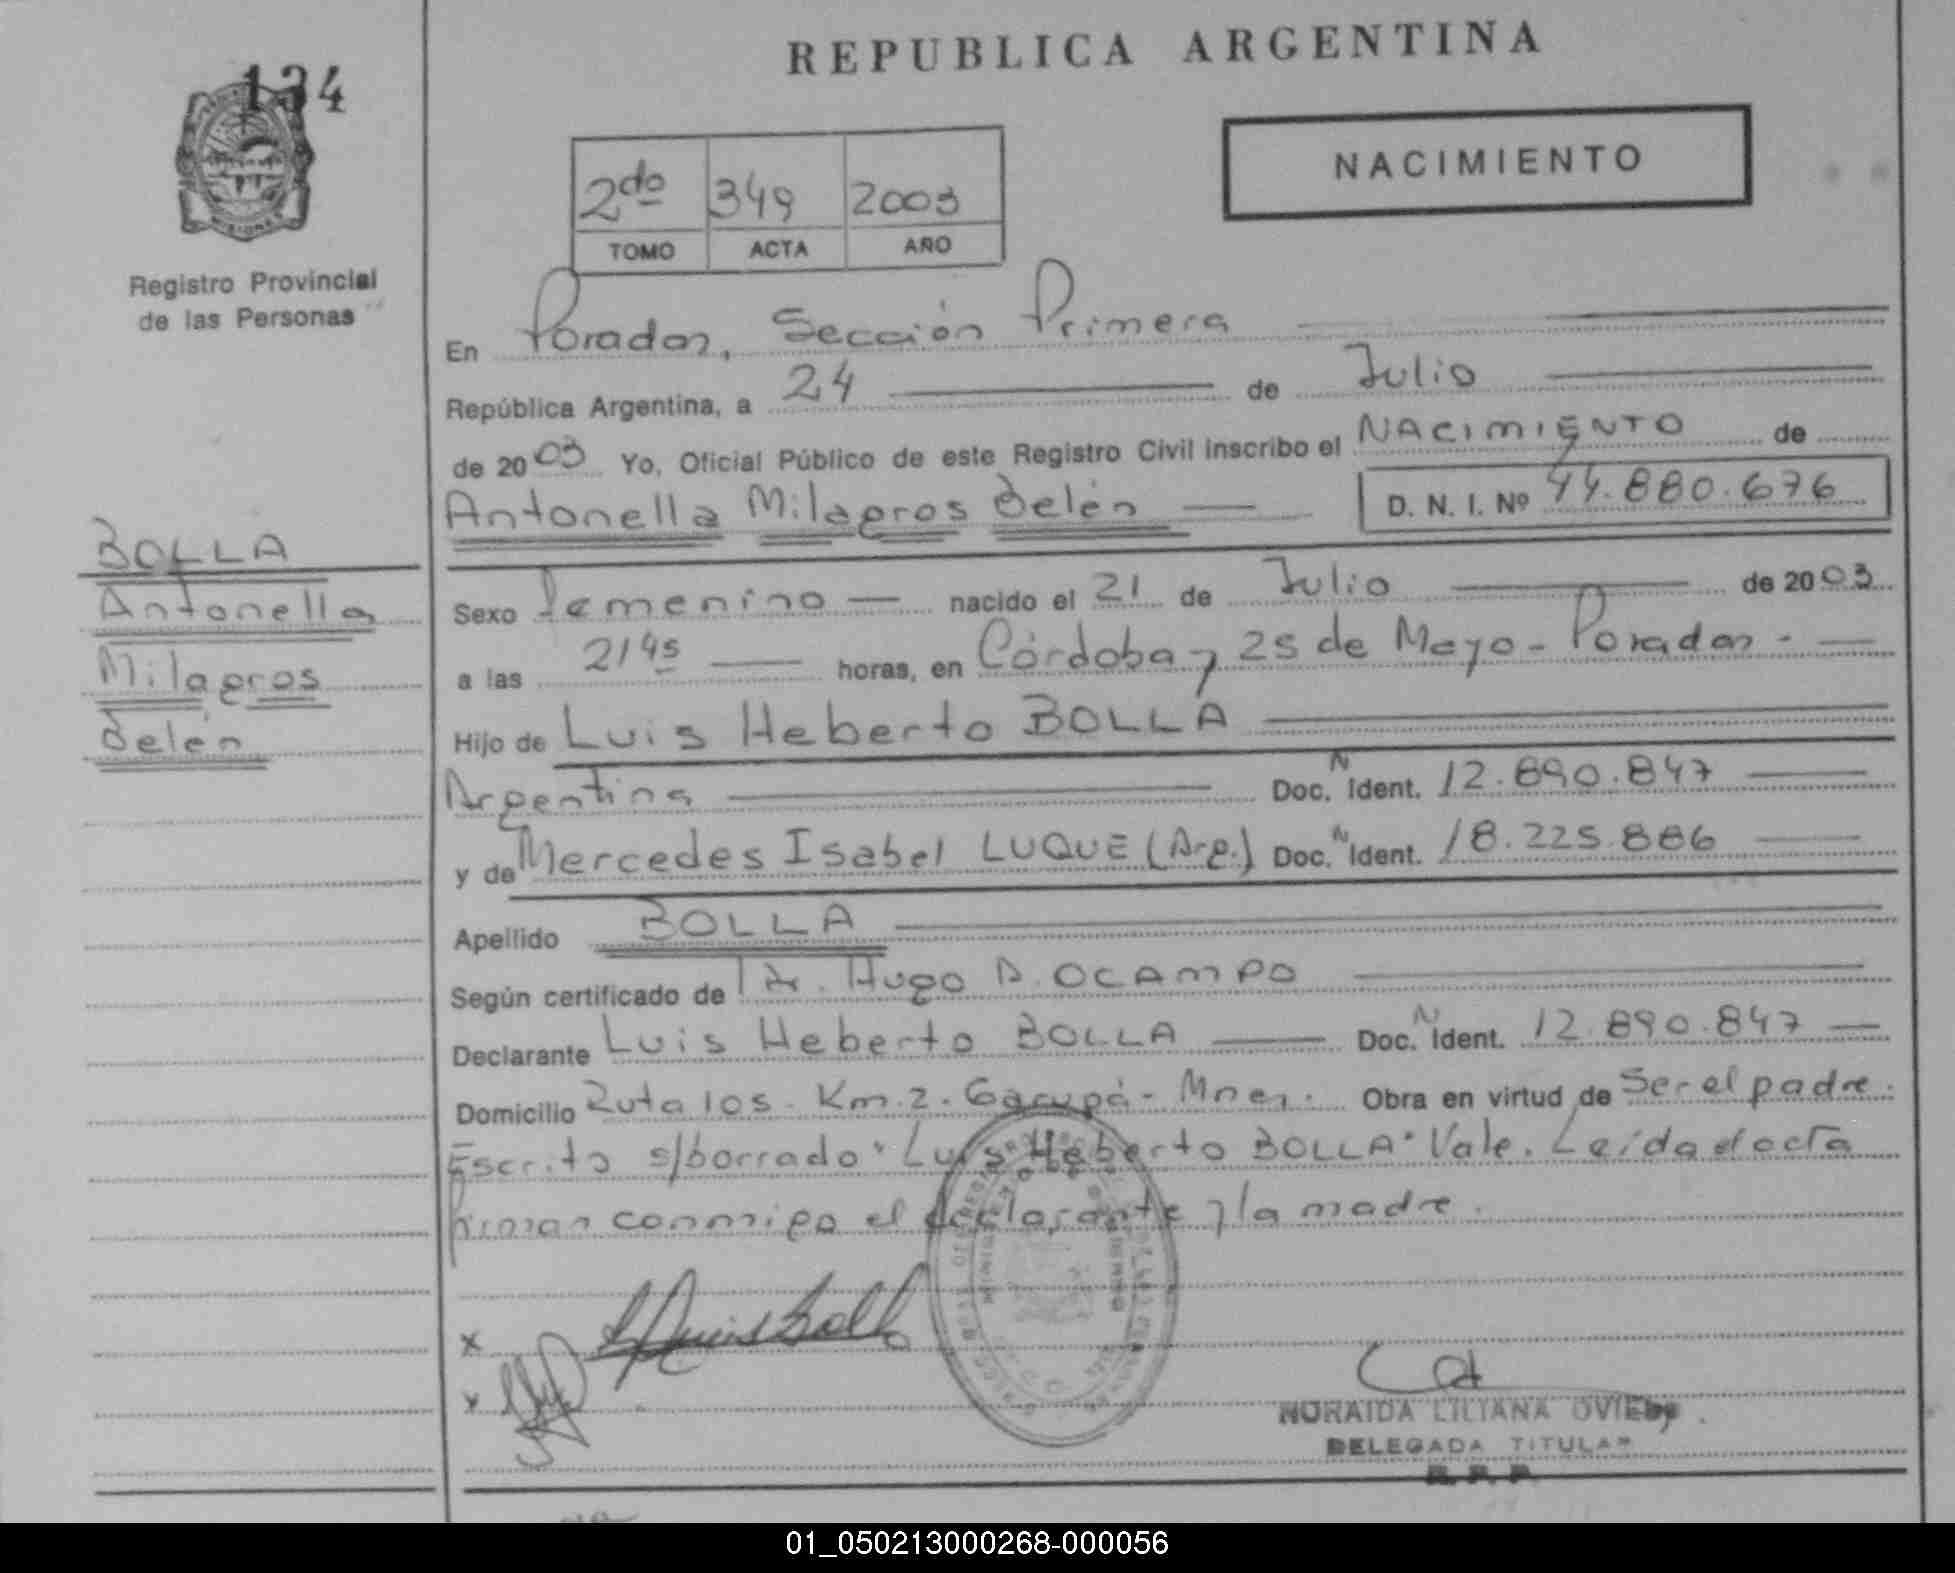 134
REPUBLICA ARGENTINA
NACIMIENTO
2do 349 2003
TOMO ACTA AÑO
Registro Provincial
de las Personas
En Posadas, Sección Primera
República Argentina, a 24 de Julio
de 2003 Yo, Oficial Público de este Registro Civil inscribo el NACIMIENTO de
Antonella Milagros Belén D. N. I. Nº 44.880.676
BOLLA
Antonella
Milagros
Belén
Sexo femenino nacido el 21 de Julio de 2003
a las 2145 horas, en Córdoba y 25 de Mayo - Posadas -
Hijo de Luis Heberto BOLLA
Argentina Doc. N Ident. 12.890.847
y de Mercedes Isabel LUQUE (Arg.) Doc. N Ident. 18.225.886
Apellido BOLLA
Según certificado de Dr. Hugo D. OCAMPO
Declarante Luis Heberto BOLLA Doc. N Ident. 12.890.847
Domicilio Ruta 105 - Km. 2 - Garupá - Mnes. Obra en virtud de Ser el padre.
Escrito s/borrado "Luis Heberto BOLLA" Vale. Leída el acta
firman conmigo el declarante y la madre.
x Luis Boll
x
NORAIDA LILIANA OVIEDO
DELEGADA TITULAR
R. P. P.
01_050213000268-000056